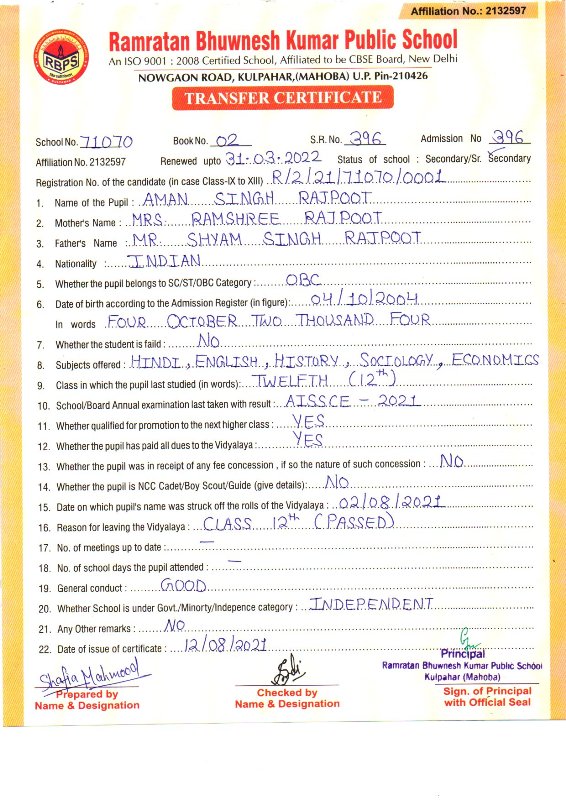 Affiliation No.: 2132597
RBPS
Ramratan Bhuwnesh Kumar Public School
An ISO 9001 : 2008 Certified School, Affiliated to be CBSE Board, New Delhi
NOWGAON ROAD, KULPAHAR,(MAHOBA) U.P. Pin-210426
TRANSFER CERTIFICATE
School No. 71070 Book No. 02 S.R. No. 396 Admission No 396
Affiliation No. 2132597 Renewed upto 31-03-2022 Status of school : Secondary/Sr. Secondary
Registration No. of the candidate (in case Class-IX to XIII) R/2/21/71070/0001
1. Name of the Pupil : AMAN SINGH RAJPOOT
2. Mother's Name : MRS. RAMSHREE RAJPOOT
3. Father's Name : MR. SHYAM SINGH RAJPOOT
4. Nationality : INDIAN
5. Whether the pupil belongs to SC/ST/OBC Category : OBC
6. Date of birth according to the Admission Register (in figure): 04/10/2004
In words FOUR OCTOBER TWO THOUSAND FOUR
7. Whether the student is faild : NO
8. Subjects offered : HINDI, ENGLISH, HISTORY, SOCIOLOGY, ECONOMICS
9. Class in which the pupil last studied (in words): TWELFTH (12th)
10. School/Board Annual examination last taken with result : AISSCE - 2021
11. Whether qualified for promotion to the next higher class : YES
12. Whether the pupil has paid all dues to the Vidyalaya : YES
13. Whether the pupil was in receipt of any fee concession , if so the nature of such concession : NO
14. Whether the pupil is NCC Cadet/Boy Scout/Guide (give details): NO
15. Date on which pupil's name was struck off the rolls of the Vidyalaya : 02/08/2021
16. Reason for leaving the Vidyalaya : CLASS 12th (PASSED)
17. No. of meetings up to date : —
18. No. of school days the pupil attended : —
19. General conduct : GOOD
20. Whether School is under Govt./Minorty/Indepence category : INDEPENDENT
21. Any Other remarks : NO
22. Date of issue of certificate : 12/08/2021
Principal
Ramratan Bhuwnesh Kumar Public School
Kulpahar (Mahoba)
Shafia Mahmood
Prepared by Checked by Sign. of Principal
Name & Designation Name & Designation with Official Seal